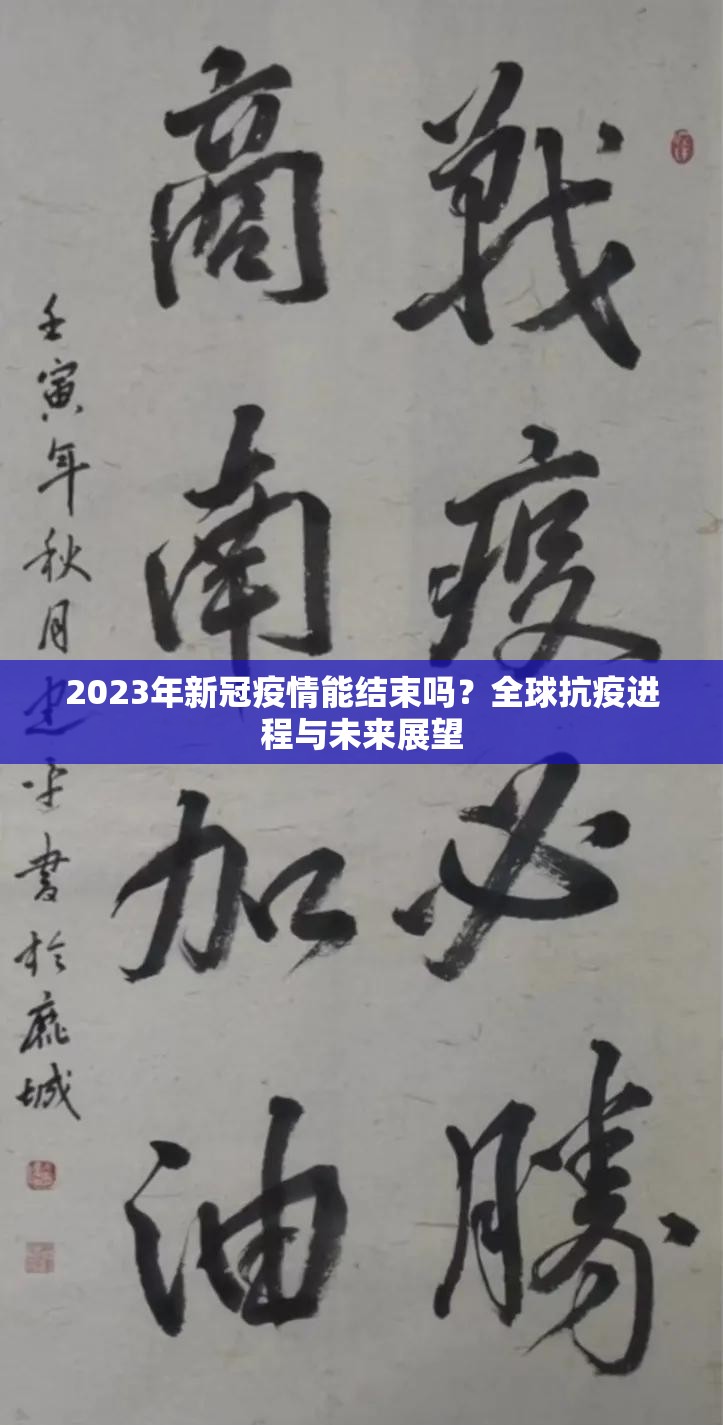 戰疫必勝
商南加油
壬寅年秋月忠平書於鹿城
2023年新冠疫情能结束吗？全球抗疫进
程与未来展望